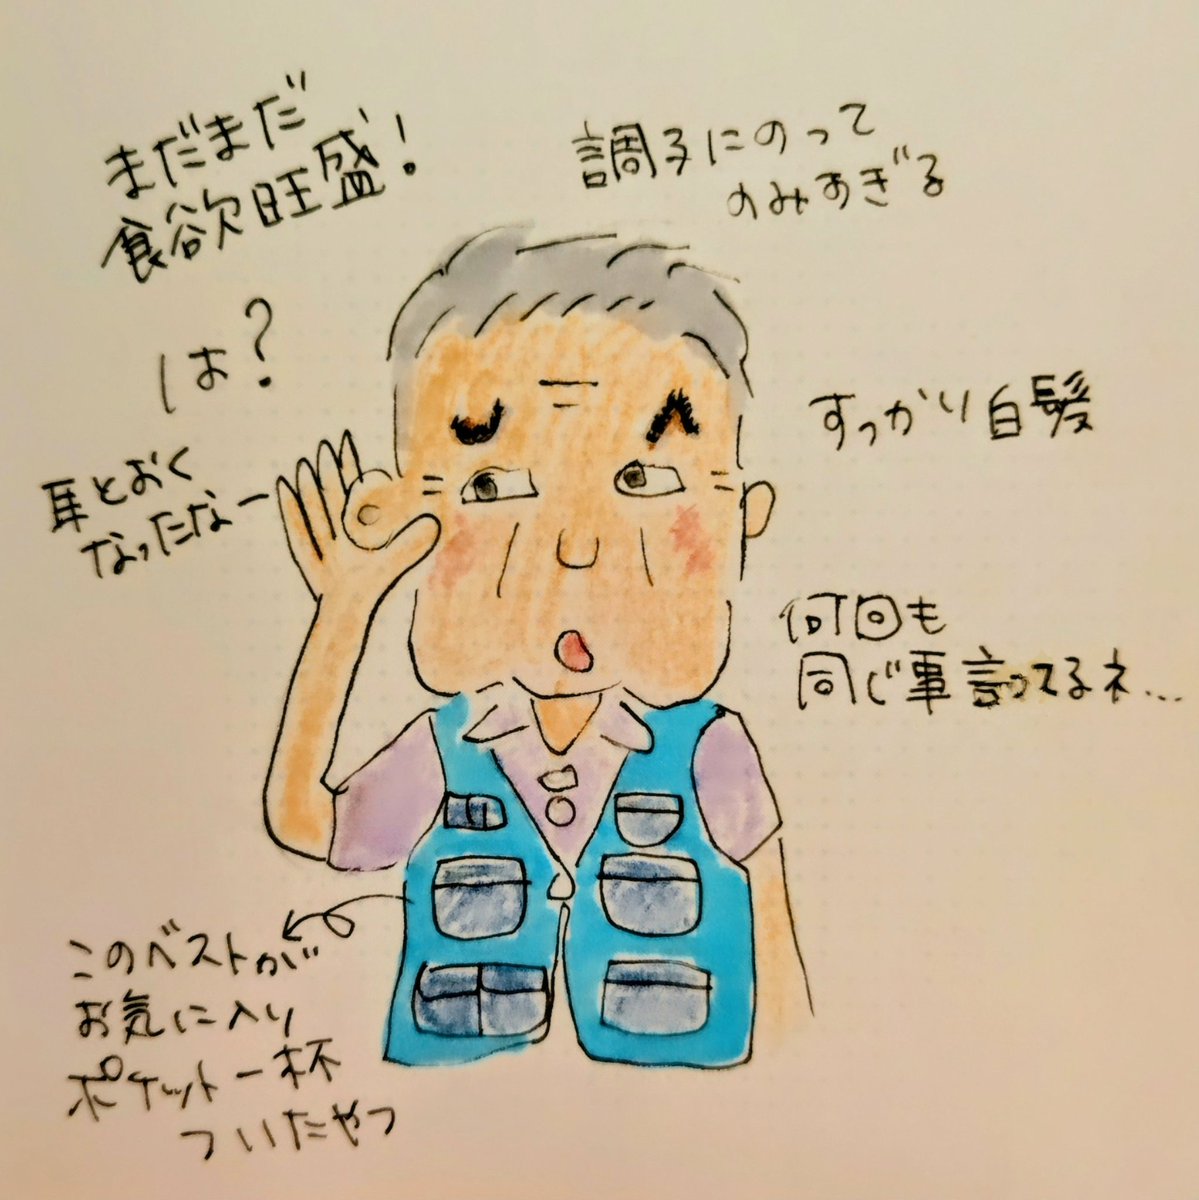 まだまだ
食欲旺盛!
調子にのって
のみすぎる
は?
すっかり白髪
耳とおく
なったなー
何回も
同じ事言ってるネ...
このベストが
お気に入り
ポケット一杯
ついたやつ